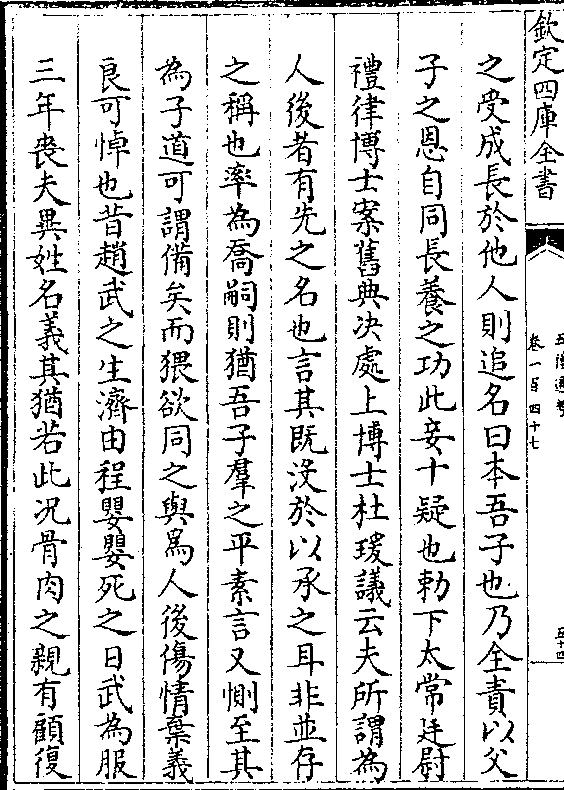 欽定四庫全書
五禮通考
卷一百四十七
五十四
之受成長於他人則追名曰本吾子也乃全責以父
子之恩自同長養之功此妾十疑也勅下太常廷尉
禮律博士案舊典决處上博士杜瑗議云夫所謂為
人後者有先之名也言其既沒於以承之耳非並存
之稱也率為喬嗣則猶吾子羣之平素言又惻至其
為子道可謂備矣而猥欲同之與爲人後傷情棄義
良可悼也昔趙武之生濟由程嬰嬰死之日武為服
三年喪夫異姓名義其猶若此况骨肉之親有顧復